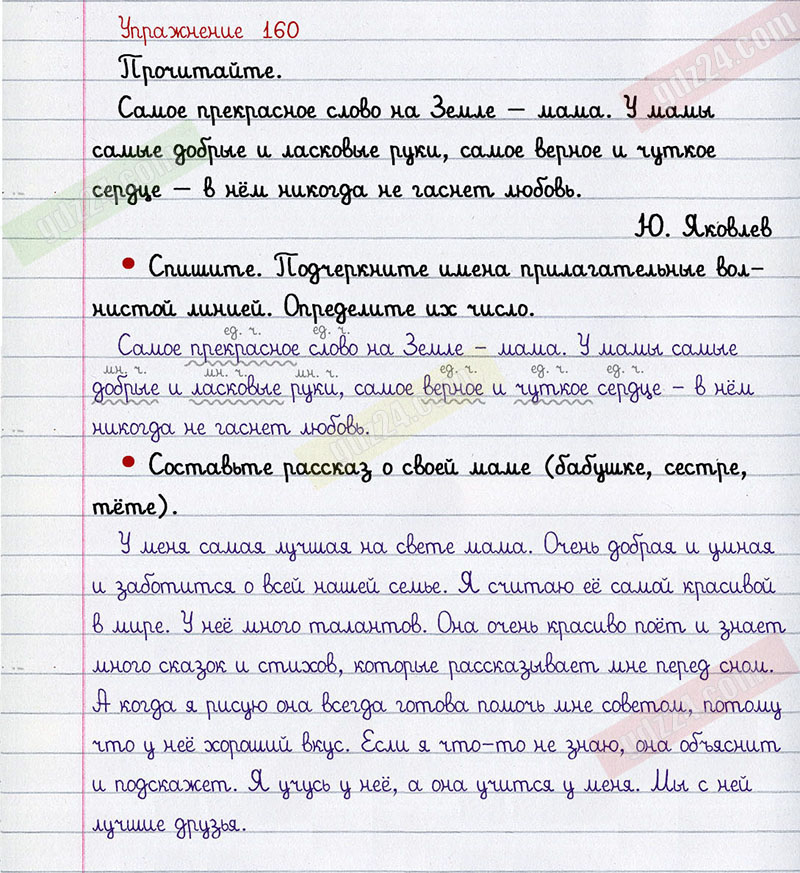 Упражнение 160
Прочитайте.
Самое прекрасное слово на Земле – мама. У мамы
самые добрые и ласковые руки, самое верное и чуткое
сердце – в нём никогда не гаснет любовь.
Ю. Яковлев
• Спишите. Подчеркните имена прилагательные вол-
нистой линией. Определите их число.
ед. ч. ед. ч.
Самое прекрасное слово на Земле – мама. У мамы самые
мн. ч. мн. ч. мн. ч. ед. ч. ед. ч. ед. ч.
добрые и ласковые руки, самое верное и чуткое сердце – в нём
никогда не гаснет любовь.
• Составьте рассказ о своей маме (бабушке, сестре,
тёте).
У меня самая лучшая на свете мама. Очень добрая и умная
и заботится о всей нашей семье. Я считаю её самой красивой
в мире. У неё много талантов. Она очень красиво поёт и знает
много сказок и стихов, которые рассказывает мне перед сном.
А когда я рисую она всегда готова помочь мне советом, потому
что у неё хороший вкус. Если я что-то не знаю, она объяснит
и подскажет. Я учусь у неё, а она учится у меня. Мы с ней
лучшие друзья.
gdz24.com
gdz24.com
gdz24.com
gdz24.com